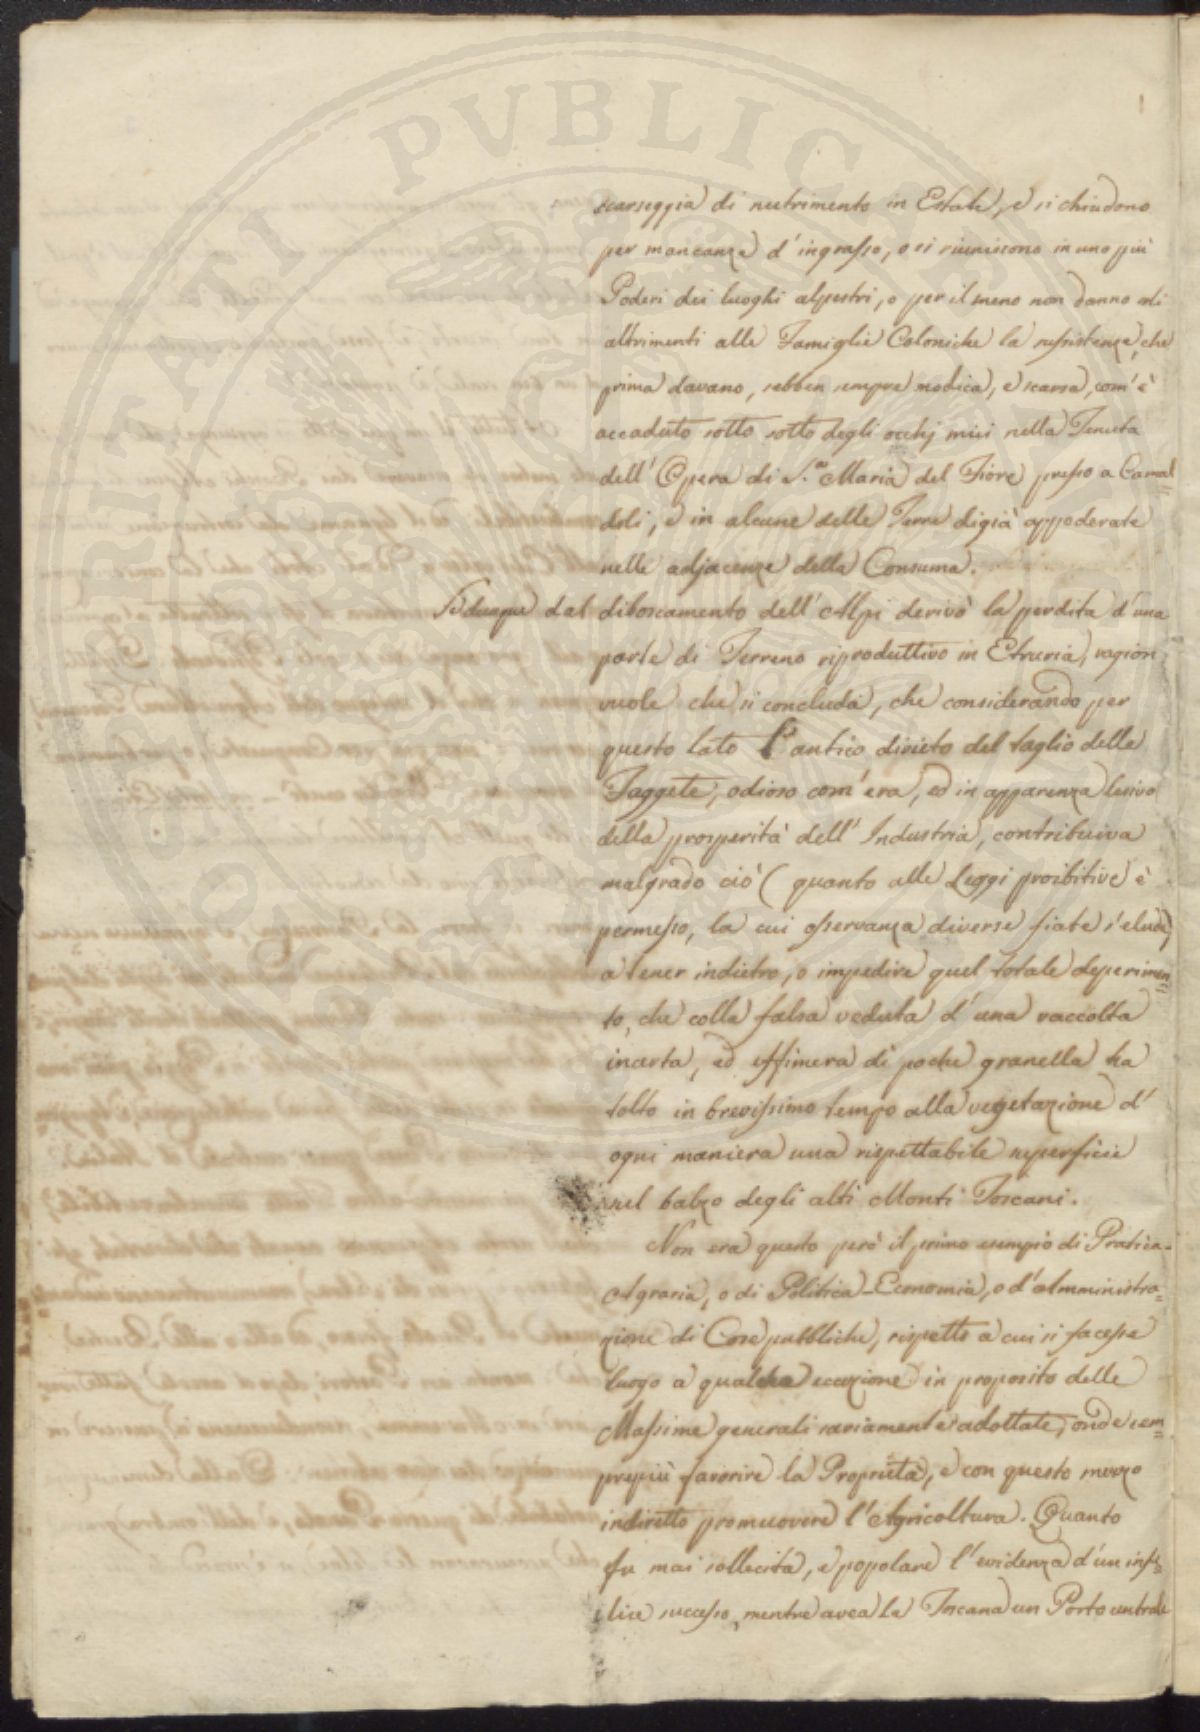 scarseggia di nutrimento in Estate, e si chiudono
per mancanza d' ingrasso, o si riuniscono in uno più
Poderi dei luoghi alpestri, o per il meno non danno
altrimenti alle Famiglie Coloniche la sussistenza, che
prima davano, sebben sempre modica, e scarsa, com' è
accaduto sotto sotto degli occhj miei nella Tenuta
dell' Opera di S.ª Maria del Fiore presso a Camal=
doli, e in alcune delle Terre digià appoderate
nelle adjacenze della Consuma.
Se dunque dal diboscamento dell' Alpi derivò la perdita d' una
parte di Terreno riproduttivo in Etruria, ragion
vuole che si concluda, che considerando per
questo lato l' antico divieto del taglio delle
Faggete, odioso com' era, ed in apparenza lesivo
della prosperità dell' Industria, contribuiva
malgrado ciò (quanto alle Leggi proibitive è
permesso, la cui osservanza diverse fiate s' elude)
a tener indietro, o impedire quel totale deperimen=
to, che colla falsa veduta d' una raccolta
incerta, ed effimera di poche granella ha
tolto in brevissimo tempo alla vegetazione d'
ogni maniera una rispettabile superficie
nel balzo degli alti Monti Toscani.
Non era questo però il primo esempio di Pratica-
Agraria, o di Politica-Economia, o d' amministra=
zione di Cose pubbliche, rispetto a cui si facesse
luogo a qualche eccezione in proposito delle
Massime generali saviamente adottate, onde sem=
prepiù favorire la Proprietà, e con questo mezzo
indiretto promuovere l' Agricoltura. Quanto
fu mai sollecita, e popolare l' evidenza d' un infe=
lice successo, mentre avea la Toscana un Porto centrale
SOCIETATIS PUBLICAE